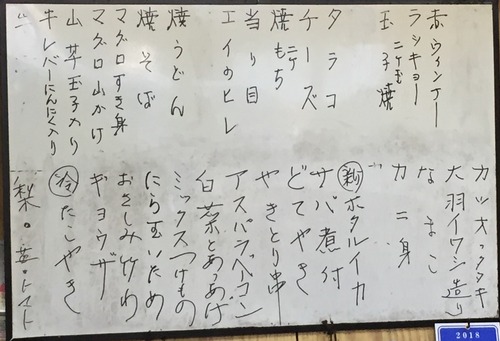 赤ウィンナー
ラッキョー
玉子焼
タラコ
チーズ
焼もち
当り目
エイのヒレ
焼うどん
焼そば
マグロすき身
マグロ山かけ
山芋玉子入り
牛レバーにんにく入り
カツオタタキ
大羽イワシ造り
なまこ
カニ身
ホタルイカ
サバ煮付
どてやき
やきとり串
アスパラベーコン
白菜とあつあげ
ミックスつけもの
にら玉いため
おさしみ竹わ
ギョウザ
冷 たこやき
梨。苺。トマト
2018